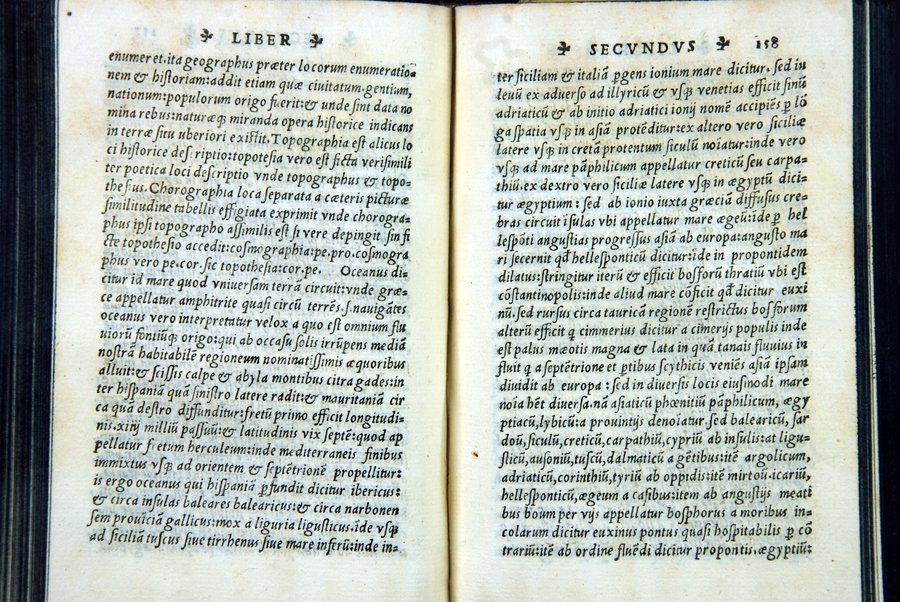 LIBER
enumeret.ita geographus præter locorum enumeratio-
nem & historiam:addit etiam quæ ciuitatum.gentium,
nationum:populorum origo fuerit:& unde sint data no
mina rebus:naturæq; miranda opera historice indicans
in terræ situ uberiori existit. Topographia est alicuius lo
ci historice descriptio:topotesia vero est ficta verisimili
ter poetica loci descriptio vnde topographus & topo-
thesius. Chorographia loca separata a cæteris picturæ
similitudine tabellis effigiata exprimit vnde chorogra-
phus ipsi topographo assimilis est si vere depingit sin fi
cte topothesio accedit:cosmographia:pe.pro.cosmogra
phus vero pe.cor.sic topothesia:cor.pe. Oceanus di-
citur id mare quod vniuersam terrã circuit:vnde græ-
ce appellatur amphitrite quasi circũ terrẽs.s.nauigãtes
oceanus vero interpretatur velox a quo est omnium flu
uiorũ fontiũq; origo:qui ab occasu solis irrũpens mediã
nostrã habitabilẽ regioneum nominatissimis æquoribus
alluit:& scissis calpe & abyla montibus citra gades:in
ter hispaniã quã sinistro latere radit:& mauritaniã cir
ca quã destro diffunditur:fretũ primo efficit longitudi-
nis.xiiij milliũ passiũ:& latitudinis vix septẽ:quod ap
pellatur fretum herculeum:inde mediterraneis finibus
immixtus vsq; ad orientem & septẽtrionẽ propellitur:
is ergo oceanus qui hispaniã ꝑfundit dicitur ibericus:
& circa insulas baleares balearicus:& circa narbonen
sem prouiciã gallicus:mox a liguria ligusticus.ide vsq;
ad siciliã tuscus siue tirrhenus siue mare inferũ:inde in-
SECVNDVS 158
ter siciliam & italiã ꝑgens ionium mare dicitur. sed in
leuũ ex aduerso ad illyricũ & vsq; venetias efficit sinũ
adriaticũ & ab initio adriatici ionij nomẽ accipiẽs ꝑ lõ
ga spatia vsq; in asiã protẽditur:ex altero vero siciliæ
latere vsq; in cretã protentum siculũ noiatur:inde vero
vsq; ad mare pãphilicum appellatur creticũ seu carpa-
thiũ.ex dextro vero siciliæ latere vsq; in ægyptũ dici-
tur ægyptium: sed ab ionio iuxta græciã diffusus cre-
bras circuit isulas vbi appellatur mare ægeũ:ide ꝑ hel
lespõti angustias progressus asiã ab europa:angusto ma
ri secernit qd hellesponticũ dicitur:ide in propontidem
dilatus:stringitur iterũ & efficit bosforũ thratiũ vbi est
cõstantinopolis:inde aliud mare cõficit qd dicitur euxi
nũ.sed rursus circa tauricã regionẽ restrictus bosforum
alterũ efficit q cimmerius dicitur a cimerijs populis inde
est palus mæotis magna & lata in quã tanais fluuius in
fluit q a septẽtrione et ꝑtibus scythicis veniẽs asiã ipsam
diuidit ab europa : sed in diuersis locis eiusmodi mare
noia hẽt diuersa.nã asiaticũ phœnitiũ pãphilicum, ægy
ptiacũ,lybicũ:a prouintijs denoiatur.sed balearicũ, sar
doũ,siculũ,creticũ,carpathiũ,cypriũ ab insulis:at ligu-
sticũ,ausoniũ,tuscũ,dalmaticũ a gẽtibus:itẽ argolicum,
adriaticũ,corinthiũ,tyriũ ab oppidis:itẽ mirtoũ.icariũ,
hellesponticũ,ægeum a casibus:item ab angustijs meati
bus boum per vijs appellatur bosphorus a moribus in-
colarum dicitur euxinus pontus quasi hospitabilis ꝑ cõ
trariũ:itẽ ab ordine fluẽdi dicitur propontis.ægyptiũ: